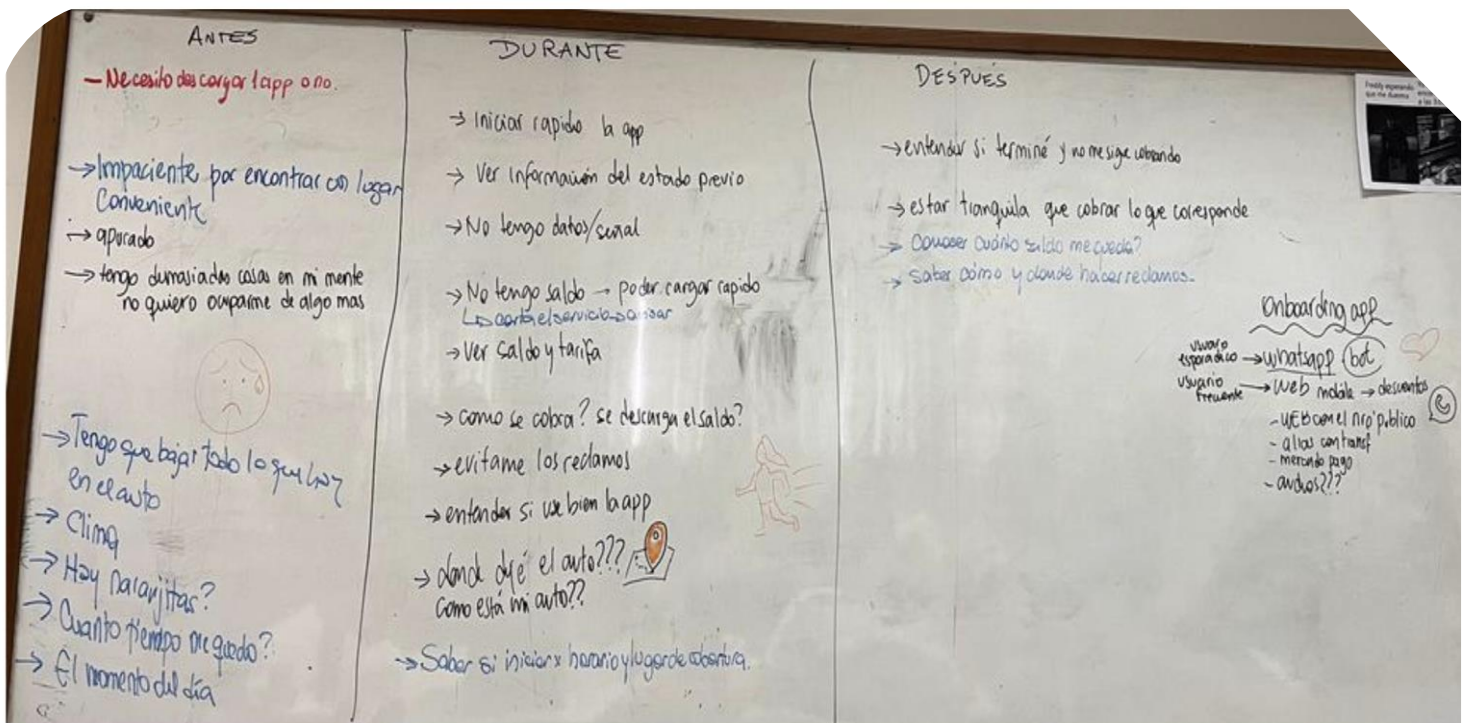 ANTES
- Necesito descargar 1 app o no.
→ Impaciente por encontrar un lugar
Conveniente
→ apurado
→ tengo demasiadas cosas en mi mente
no quiero ocuparme de algo mas
→ Tengo que bajar todo lo que hay
en el auto
→ Clima
→ Hay naranjitas?
→ Cuanto tiempo me quedo?
→ El momento del día
DURANTE
→ iniciar rapido la app
→ Ver información del estado previo
→ No tengo datos/señal
→ No tengo saldo → poder cargar rapido
↳ corta el servicio → avisar
→ Ver saldo y tarifa
→ como se cobra? se descarga el saldo?
→ evitame los reclamos
→ entender si use bien la app
→ donde dejé el auto???
como está mi auto??
→ Saber si iniciar x horario y lugar de cobertura.
DESPUÉS
→ entender si terminé y no me sigue cobrando
→ estar tranquila que cobrar lo que corresponde
→ Conocer cuánto saldo me queda?
→ Saber cómo y donde hacer reclamos.
Onboarding app
usuario
esporadico → whatsapp (bot)
usuario
frecuente → web mobile → descuentos
- WEB con el nro publico
- alias con transf
- mercado pago
Freddy esperando
que me duerma